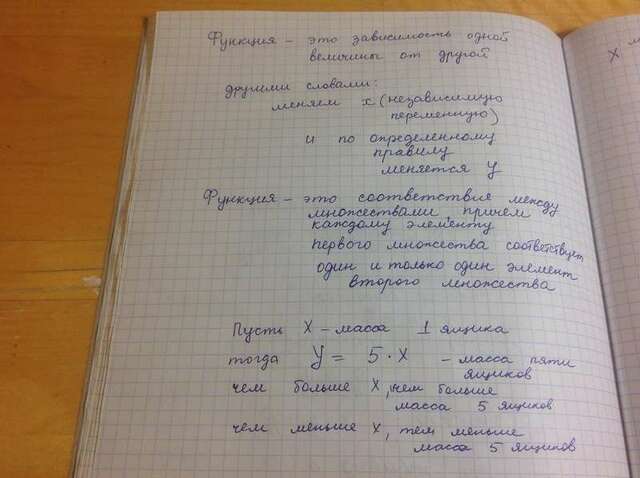 Функция – это зависимость одной
величины от другой
другими словами:
меняем x (независимую
переменную)
и по определенному
правилу
меняется y
Функция – это соответствие между
множествами, причем
каждому элементу
первого множества соответствует
один и только один элемент
второго множества
Пусть X – масса 1 ящика
тогда y = 5 · X – масса пяти
ящиков
чем больше X, чем больше
масса 5 ящиков
чем меньше X, тем меньше
масса 5 ящиков
X